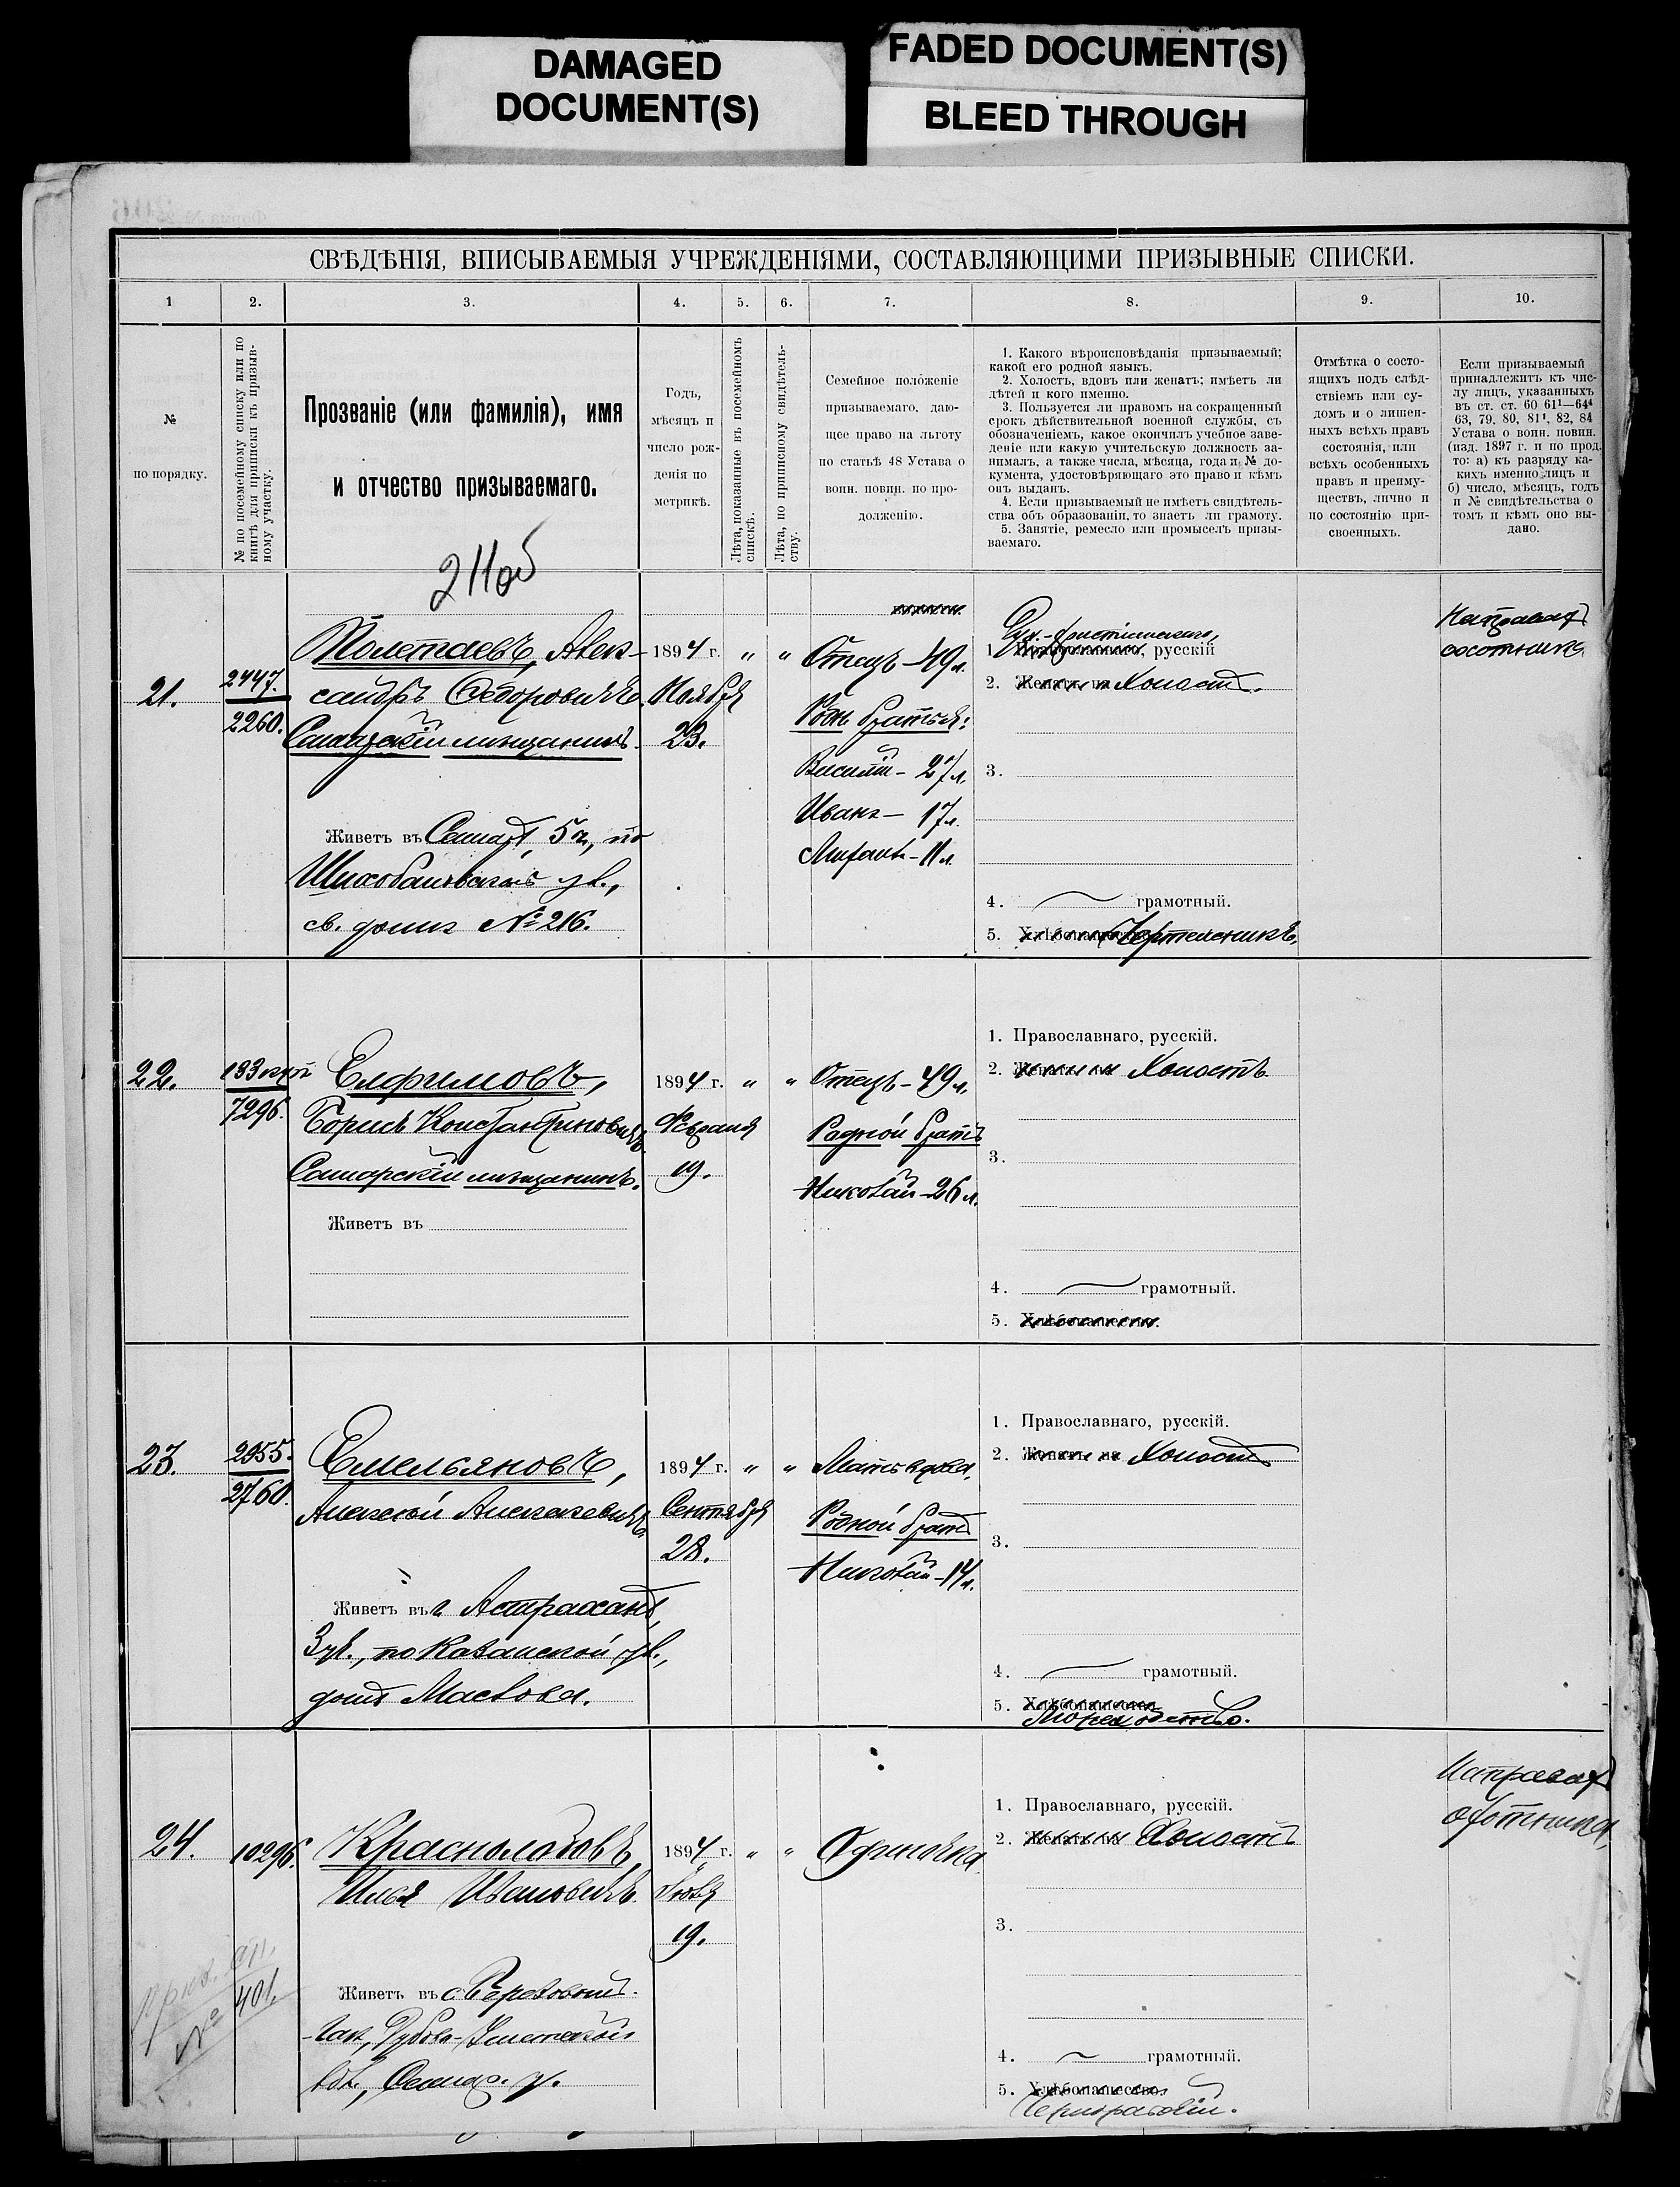 DAMAGED
DOCUMENT(S)
FADED DOCUMENT(S)
BLEED THROUGH
СВѢДѢНІЯ, ВПИСЫВАЕМЫЯ УЧРЕЖДЕНІЯМИ, СОСТАВЛЯЮЩИМИ ПРИЗЫВНЫЕ СПИСКИ.
1 2. 3. 4. 5. 6. 7. 8. 9. 10.
№
по порядку.
№ по посемейному списку или по
книгѣ для приписки къ призыв-
ному участку.
Прозваніе (или фамилія), имя
и отчество призываемаго.
211об
Годъ,
мѣсяцъ и
число рож-
денія по
метрикѣ.
Лѣта, показанные въ посемейномъ
спискѣ.
Лѣта, по приписному свидѣтель-
ству.
Семейное положеніе
призываемаго, даю-
щее право на льготу
по статьѣ 48 Устава о
воин. повин. по про-
долженію.
1. Какого вѣроисповѣданія призываемый;
какой его родной языкъ.
2. Холостъ, вдовъ или женатъ; имѣетъ ли
дѣтей и кого именно.
3. Пользуется ли правомъ на сокращенный
срокъ дѣйствительной военной службы, съ
обозначеніемъ, какое окончилъ учебное заве-
деніе или какую учительскую должность за-
нималъ, а также числа, мѣсяца, года и № до-
кумента, удостовѣряющаго это право и кѣмъ
онъ выданъ.
4. Если призываемый не имѣетъ свидѣтель-
ства объ образованіи, то знаетъ ли грамоту.
5. Занятіе, ремесло или промыселъ призы-
ваемаго.
Отмѣтка о состо-
ящихъ подъ слѣд-
ствіемъ или су-
домъ и о лишен-
ныхъ всѣхъ правъ
состоянія, или
всѣхъ особенныхъ
правъ и преиму-
ществъ, лично и
по состоянію при-
своенныхъ.
Если призываемый
принадлежитъ къ чис-
лу лицъ, указанныхъ
въ ст. ст. 60 61¹—64⁴
63, 79, 80, 81¹, 82, 84
Устава о воин. повин.
(изд. 1897 г. и по прод.
то: а) къ разряду ка-
кихъ именно лицъ и
б) число, мѣсяцъ, годъ
и № свидѣтельства о
томъ и кѣмъ оно вы-
дано.
21.
2447.
2260.
Полетаевъ, Алек-
сандръ Ѳедоровичъ
Самарскій мѣщанинъ.
Живетъ въ Самарѣ, 5 ч., по
Шихобаловской ул.,
св. домъ № 216.
1894 г.
Ноября
23.
" "
Отецъ - 49 л.
Родн. братья:
Василій - 21 л.
Иванъ - 17 л.
- 11 л.
1. Православнаго, русскій
2. Женатъ на Холостъ.
3.
4. грамотный.
5. Хлѣбопашество Чертежникъ.
22.
7296.
Елфимовъ,
Борисъ Константиновичъ
Самарскій мѣщанинъ.
Живетъ въ
1894 г.
Февраля
19.
" "
Отецъ - 49 л.
Родной братъ
Николай - 26 л.
1. Православнаго, русскій.
2. Женатъ на Холостъ
3.
4. грамотный.
5. Хлѣбопашество.
23.
2955.
2760.
Емельяновъ,
Алексѣй Алексѣевичъ
Живетъ въ г. Астрахани,
3 уч., по Казанской ул.,
домъ Маслова.
1894 г.
Сентября
28.
" "
Мать вдова.
Родной братъ
Николай - 14 л.
1. Православнаго, русскій.
2. Женатъ на Холостъ
3.
4. грамотный.
5. Хлѣбопашество
Мореходство.
24.
10296.
Краснолобовъ,
Илья Ивановичъ.
Живетъ въ с.
Дубово-Уметской
вол., Самар. у.
1894 г.
Іюля
19.
" "
Одиночка.
1. Православнаго, русскій.
2. Женатъ на Холостъ
3.
4. грамотный.
5. Хлѣбопашество.
Чернорабочій.
охотника
приз. сп.
№ 401.